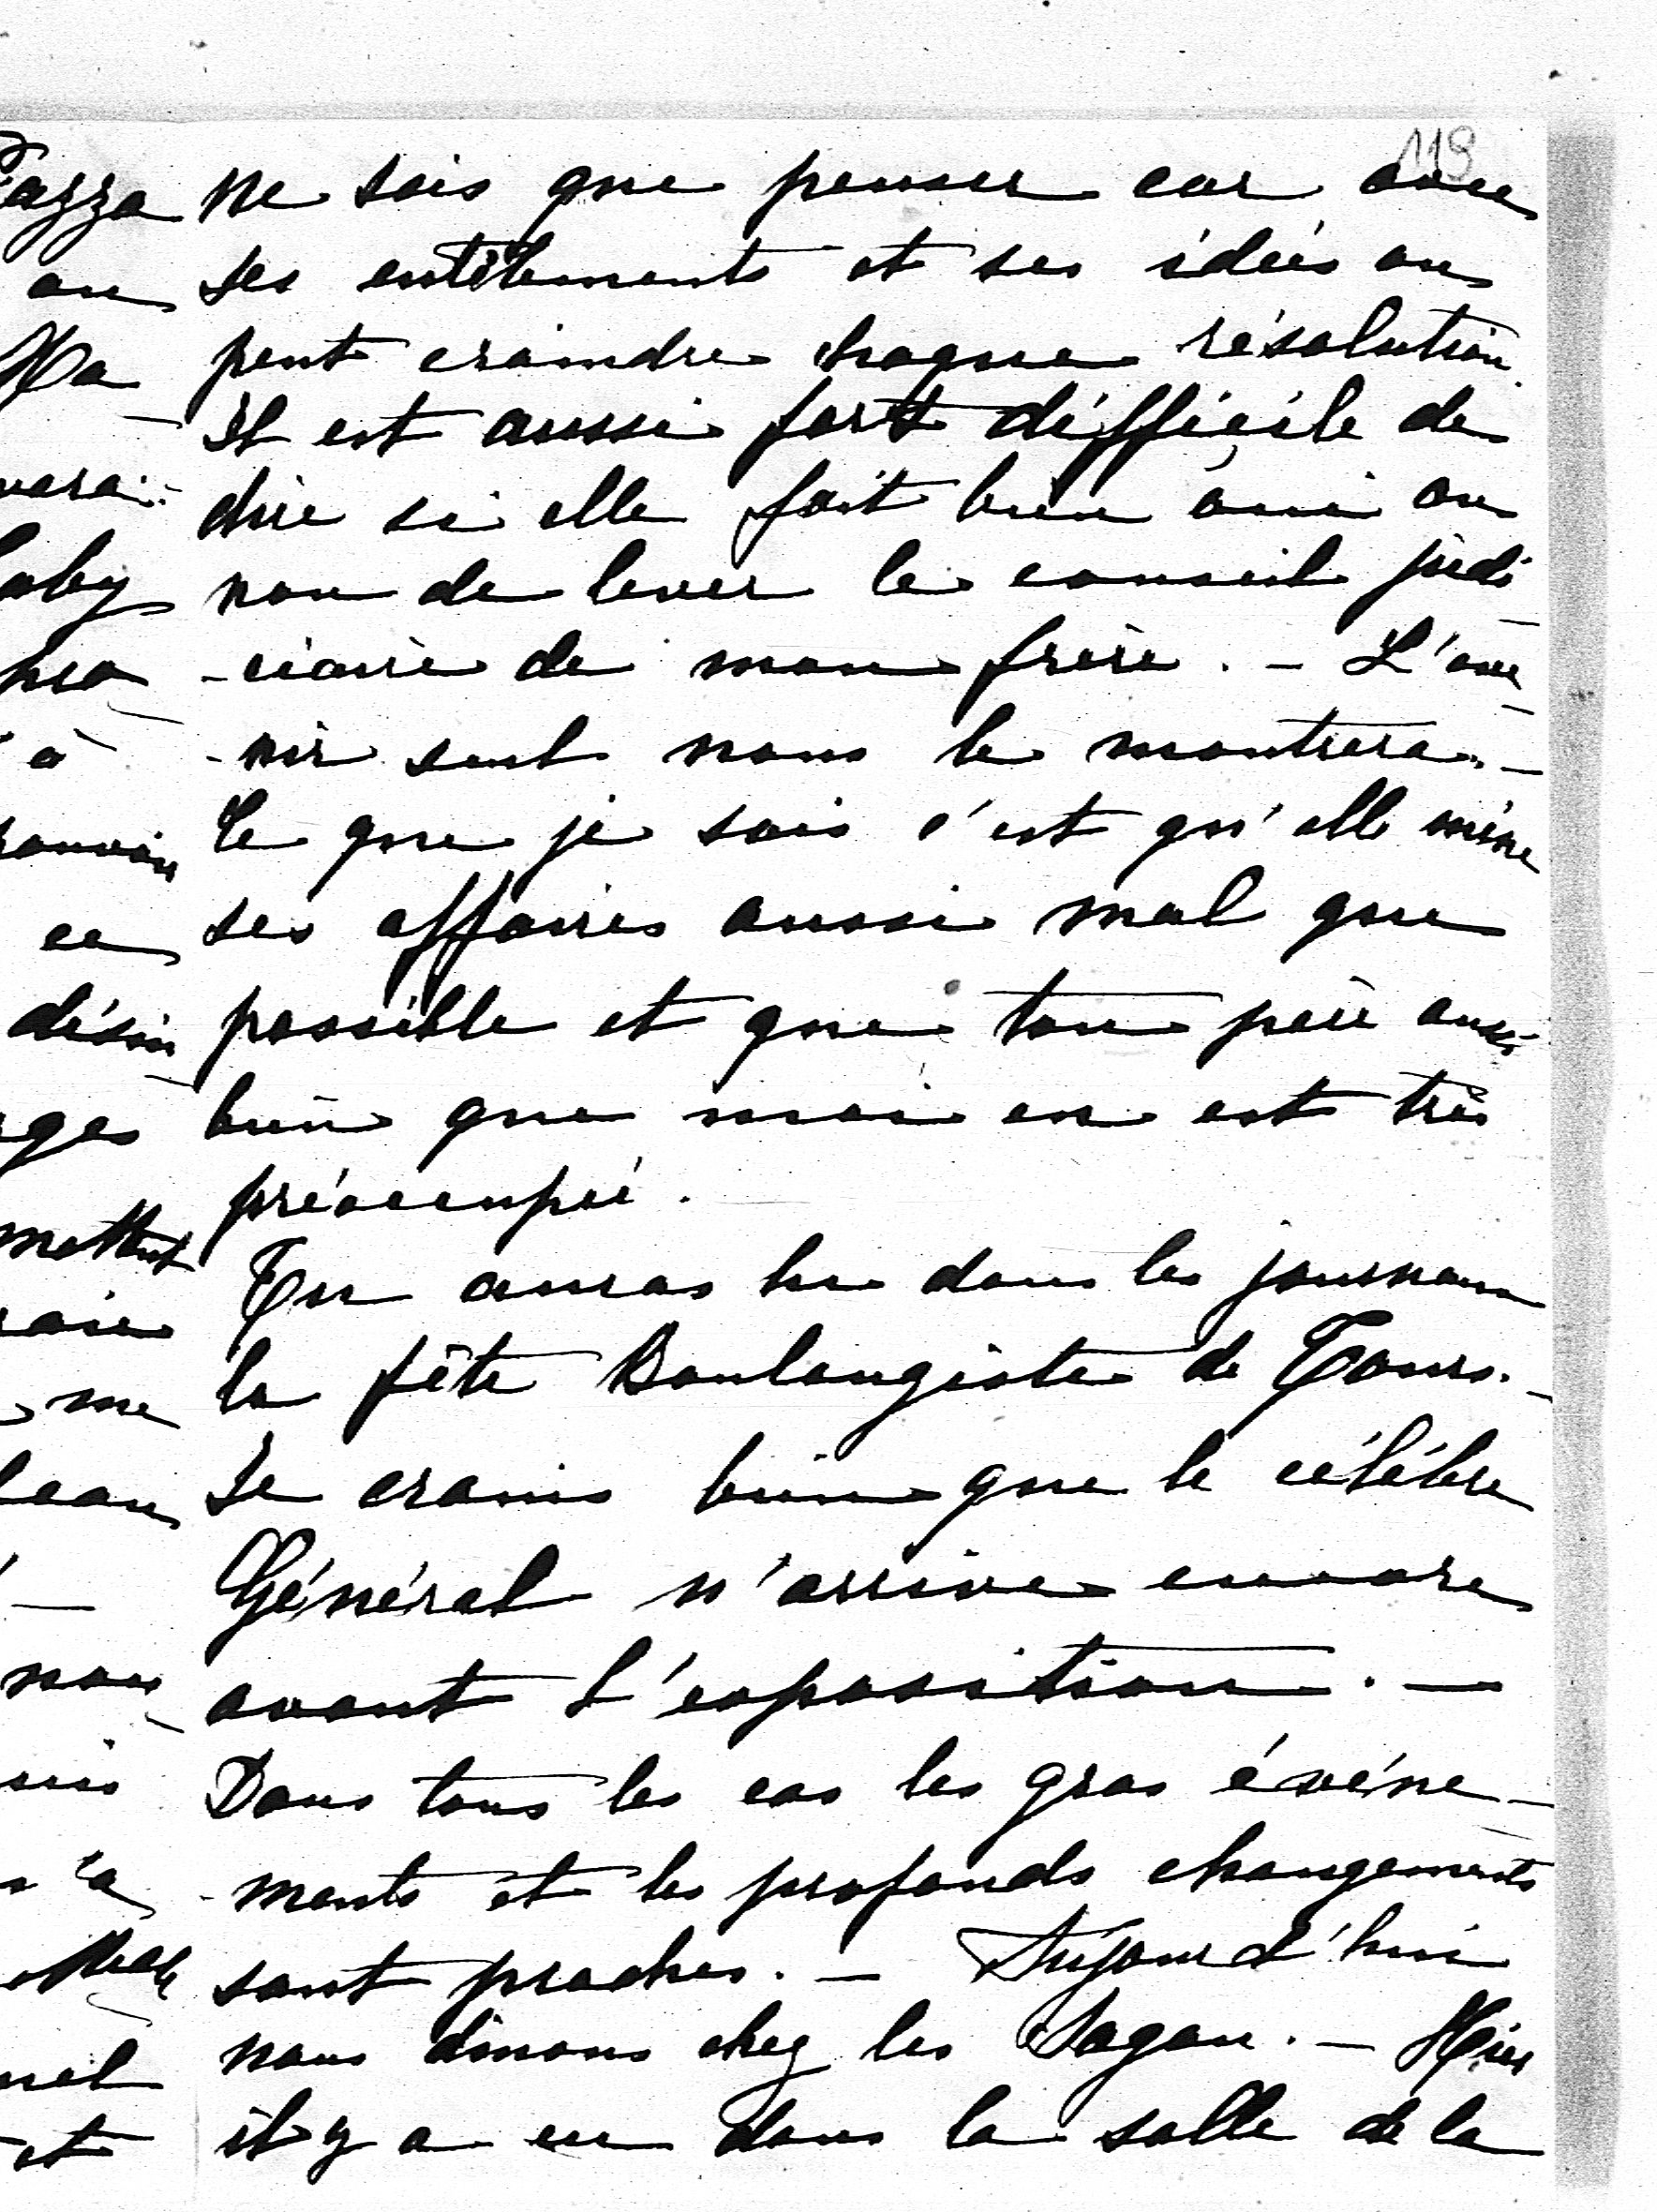 119
ne sais que penser car avec
ses entêtements et ses idées on
peut craindre chaque résolution.
Il est aussi fort difficile de
dire si elle fait bien oui ou
non de lever le conseil judi
-ciaire de mon frère. - L'ave
-nir seul nous le montrera. -
Ce que je sais c'est qu'elle mène
ses affaires aussi mal que
possible et que ton père aussi
bien que moi en est très
préoccupé.
Tu auras lu dans les journaux
la fête Boulangiste de Tours. -
Je crains bien que le célèbre
Général n'arrive encore
avant l'exposition. -
Dans tous les cas les gros événe-
-ments et les profonds changements
sont proches. - Aujourd'hui
nous dinons chez les Sagan. - Hier
il y a eu dans la salle de la